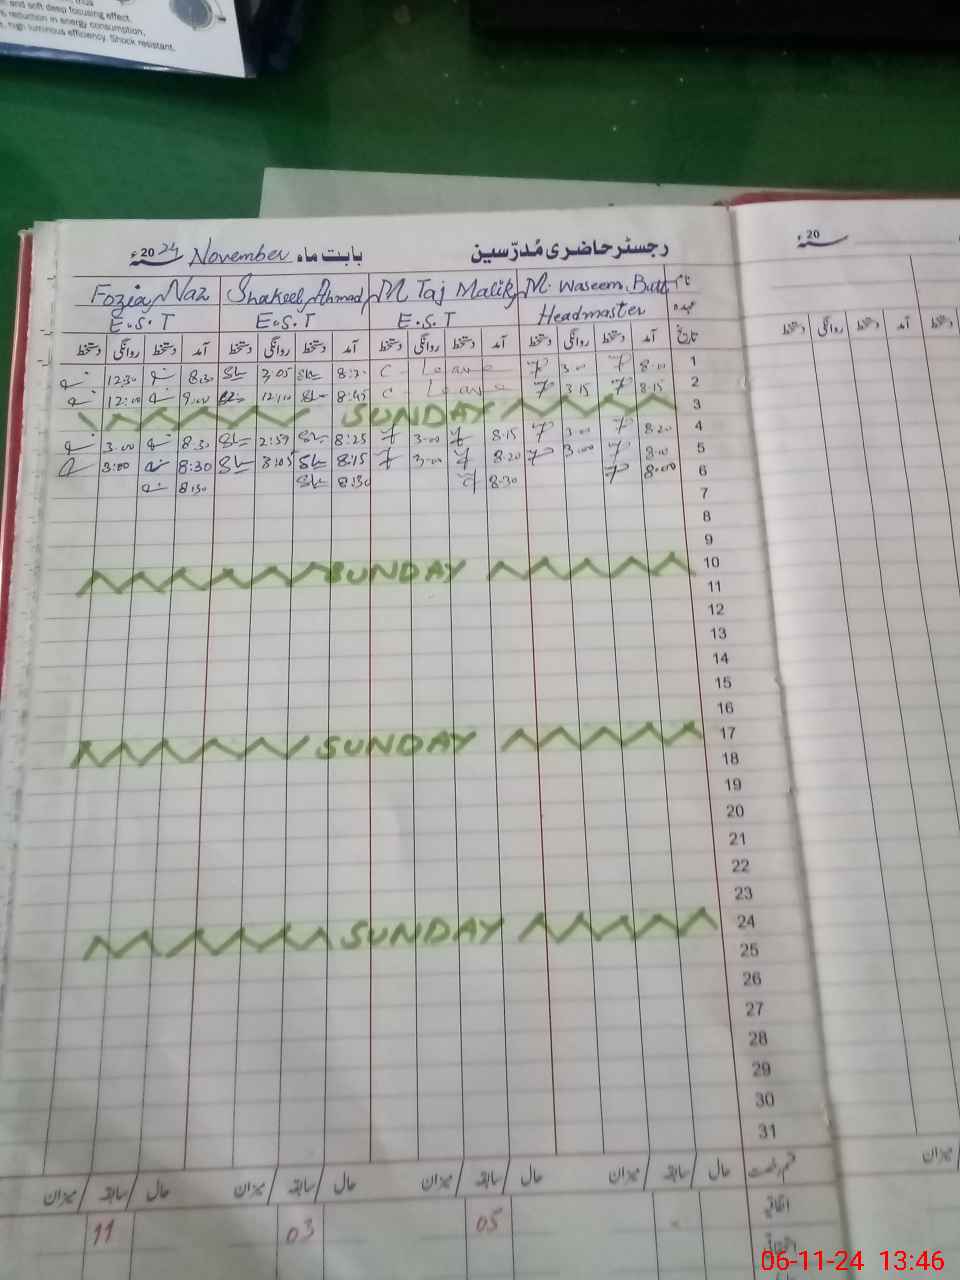 and soft deep focusing effect.
reduction in energy consumption,
high luminous efficiency. Shock resistant.
رجسٹر حاضری مُدرّسین بابت ماہ November 2024ء
20ء
نام M. Waseem Butt M Taj Malik Shakeel Ahmad Fozia Naz
عہدہ Headmaster E.S.T E.S.T E.S.T
تاریخ آمد دستخط روانگی دستخط آمد دستخط روانگی دستخط آمد دستخط روانگی دستخط آمد دستخط روانگی دستخط
دستخط آمد دستخط روانگی دستخط
12:30 8:30 3:05 C - Leave 3:00 8:00 1
12:00 9:00 12:10 8:45 C - Leave 3:15 8:15 2
SUNDAY 3
3:00 8:30 2:59 8:25 3:00 8:15 3:00 8:20 4
3:00 8:30 3:05 8:15 3:00 8:20 3:00 8:00 5
8:30 8:30 8:30 8:00 6
7
8
9
SUNDAY 10
11
12
13
14
15
16
SUNDAY 17
18
19
20
21
22
23
SUNDAY 24
25
26
27
28
29
30
31
حال سابقہ میزان حال سابقہ میزان حال سابقہ میزان حال سابقہ میزان
میزان
اتفاقیہ 05 03 11
06-11-24 13:46